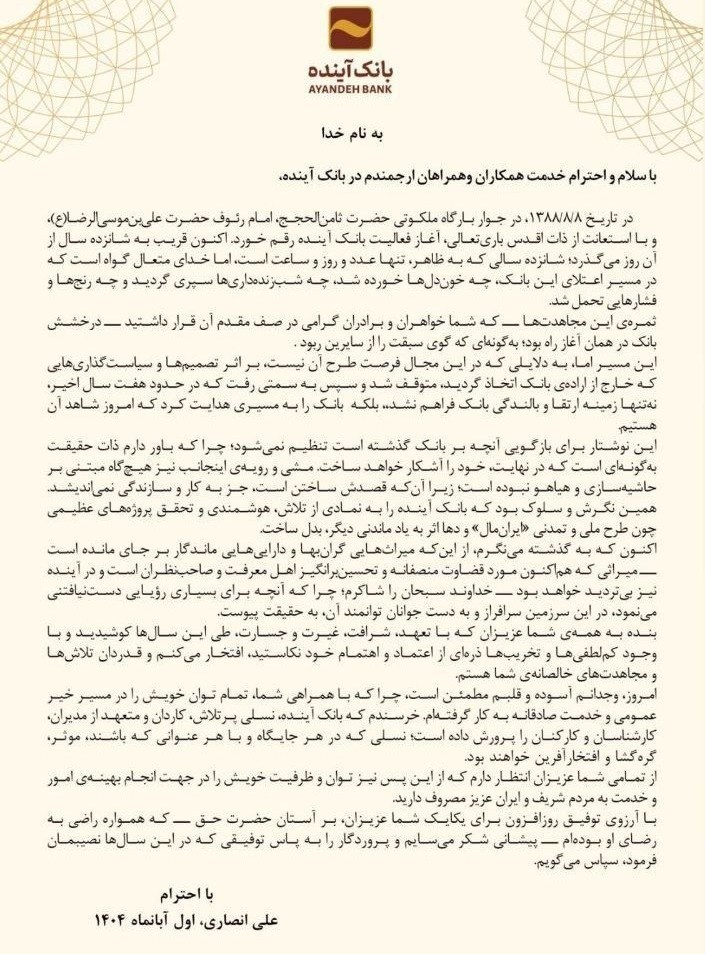 بانک آینده
AYANDEH BANK
به نام خدا
با سلام و احترام خدمت همکاران وهمراهان ارجمندم در بانک آینده،
در تاریخ ۱۳۸۸/۸/۸، در جوار بارگاه ملکوتی حضرت ثامن‌الحجج، امام رئوف حضرت علی‌بن‌موسی‌الرضا(ع)،
و با استعانت از ذات اقدس باری‌تعالی، آغاز فعالیت بانک آینده رقم خورد. اکنون قریب به شانزده سال از
آن روز می‌گذرد؛ شانزده سالی که به ظاهر، تنها عدد و روز و ساعت است، اما خدای متعال گواه است که
در مسیر اعتلای این بانک، چه خون‌دل‌ها خورده شد، چه شب‌زنده‌داری‌ها سپری گردید و چه رنج‌ها و
فشارهایی تحمل شد.
ثمره‌ی این مجاهدت‌ها ـــ که شما خواهران و برادران گرامی در صف مقدم آن قرار داشتید ـــ درخشش
بانک در همان آغاز راه بود؛ به‌گونه‌ای که گوی سبقت را از سایرین ربود .
این مسیر اما، به دلایلی که در این مجال فرصت طرح آن نیست، بر اثر تصمیم‌ها و سیاست‌گذاری‌هایی
که خارج از اراده‌ی بانک اتخاذ گردید، متوقف شد و سپس به سمتی رفت که در حدود هفت سال اخیر،
نه‌تنها زمینه ارتقا و بالندگی بانک فراهم نشد،، بلکه بانک را به مسیری هدایت کرد که امروز شاهد آن
هستیم.
این نوشتار برای بازگویی آنچه بر بانک گذشته است تنظیم نمی‌شود؛ چرا که باور دارم ذات حقیقت
به‌گونه‌ای است که در نهایت، خود را آشکار خواهد ساخت. مشی و رویه‌ی اینجانب نیز هیچ‌گاه مبتنی بر
حاشیه‌سازی و هیاهو نبوده است؛ زیرا آن‌که قصدش ساختن است، جز به کار و سازندگی نمی‌اندیشد.
همین نگرش و سلوک بود که بانک آینده را به نمادی از تلاش، هوشمندی و تحقق پروژه‌های عظیمی
چون طرح ملی و تمدنی «ایران‌مال» و دها اثر به یاد ماندنی دیگر، بدل ساخت.
اکنون که به گذشته می‌نگرم، از این‌که میراث‌هایی گران‌بها و دارایی‌هایی ماندگار بر جای مانده است
ـــ میراثی که هم‌اکنون مورد قضاوت منصفانه و تحسین‌برانگیز اهل معرفت و صاحب‌نظران است و در آینده
نیز بی‌تردید خواهد بود ـــ خداوند سبحان را شاکرم؛ چرا که آنچه برای بسیاری رؤیایی دست‌نیافتنی
می‌نمود، در این سرزمین سرافراز و به دست جوانان توانمند آن، به حقیقت پیوست.
بنده به همه‌ی شما عزیزان که با تعهد، شرافت، غیرت و جسارت، طی این سال‌ها کوشیدید و با
وجود کم‌لطفی‌ها و تخریب‌ها ذره‌ای از اعتماد و اهتمام خود نکاستید، افتخار می‌کنم و قدردان تلاش‌ها
و مجاهدت‌های خالصانه‌ی شما هستم.
امروز، وجدانم آسوده و قلبم مطمئن است، چرا که با همراهی شما، تمام توان خویش را در مسیر خیر
عمومی و خدمت صادقانه به کار گرفته‌ام. خرسندم که بانک آینده، نسلی پرتلاش، کاردان و متعهد از مدیران،
کارشناسان و کارکنان را پرورش داده است؛ نسلی که در هر جایگاه و با هر عنوانی که باشند، موثر،
گره‌گشا و افتخارآفرین خواهند بود.
از تمامی شما عزیزان انتظار دارم که از این پس نیز توان و ظرفیت خویش را در جهت انجام بهینه‌ی امور
و خدمت به مردم شریف و ایران عزیز مصروف دارید.
با آرزوی توفیق روزافزون برای یکایک شما عزیزان، بر آستان حضرت حق ـــ که همواره راضی به
رضای او بوده‌ام ـــ پیشانی شکر می‌سایم و پروردگار را به پاس توفیقی که در این سال‌ها نصیبمان
فرمود، سپاس می‌گویم.
با احترام
علی انصاری، اول آبانماه ۱۴۰۴